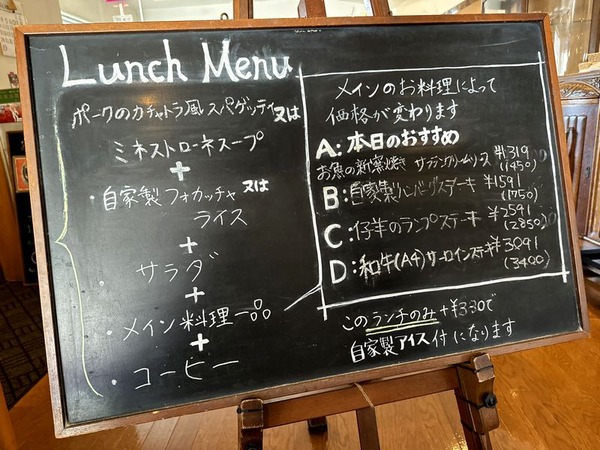 Lunch Menu
ポークのカチャトラ風スパゲッティ又は
ミネストローネスープ
+
・自家製フォカッチャ又は
ライス
+
・サラダ
+
・メイン料理一品
+
・コーヒー
メインのお料理によって
価格が変わります
A:本日のおすすめ
お魚の新窯焼き サフランクリームソース ¥1319
(1450)
B:自家製ハンバーグステーキ ¥1591
(1750)
C:仔羊のランプステーキ ¥2591
(2850)
D:和牛(A4)サーロインステーキ ¥3091
(3400)
このランチのみ+¥330で
自家製アイス付になります